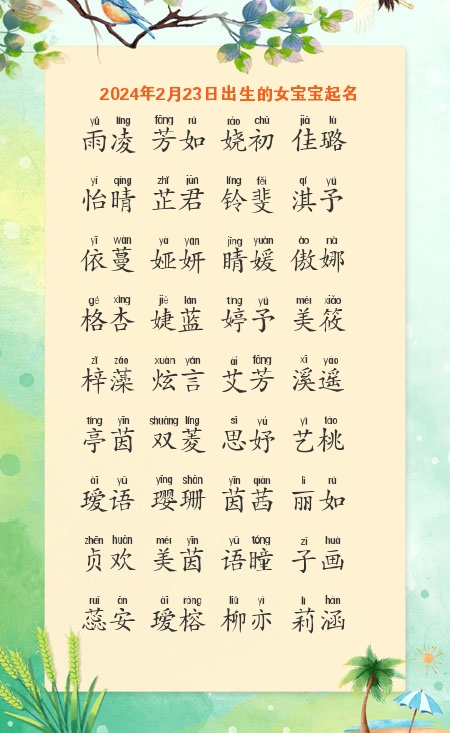 2024年2月23日出生的女宝宝起名
yǔ líng fāng rú ráo chū jiā lù
雨凌 芳如 娆初 佳璐
yí qíng zhǐ jūn líng fěi qí yú
怡晴 芷君 铃斐 淇予
yī wàn yà yán jīng yuàn ào nà
依蔓 娅妍 睛媛 傲娜
gé xìng jié lán tíng yú měi xiǎo
格杏 婕蓝 婷予 美筱
zǐ zǎo xuàn yán ài fāng xī yáo
梓藻 炫言 艾芳 溪遥
tíng yīn shuāng líng sī yú yì táo
亭茵 双菱 思妤 艺桃
ài yǔ yīng shān yīn qiàn lì rú
瑷语 璎珊 茵茜 丽如
zhēn huān měi yīn yǔ tóng zǐ huà
贞欢 美茵 语瞳 子画
ruǐ ān ài róng liǔ yì lì hán
蕊安 瑷榕 柳亦 莉涵